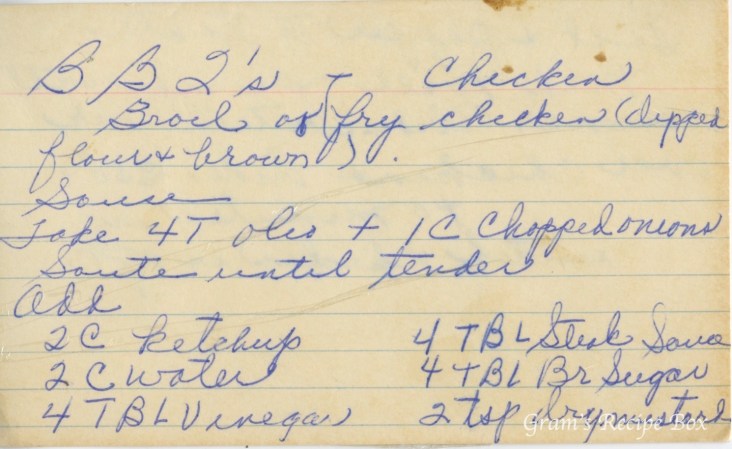 B B Q's - Chicken
Broil or (fry chicken (dipped
flour & brown).
Sause
Take 4T oleo + 1C Chopped onions
Saute until tender
Add
2C ketchup 4 TBL Steak Sauce
2C water 4 TBL Br Sugar
4 TBL Vinegar 2 tsp dry mustard
Gram's Recipe Box